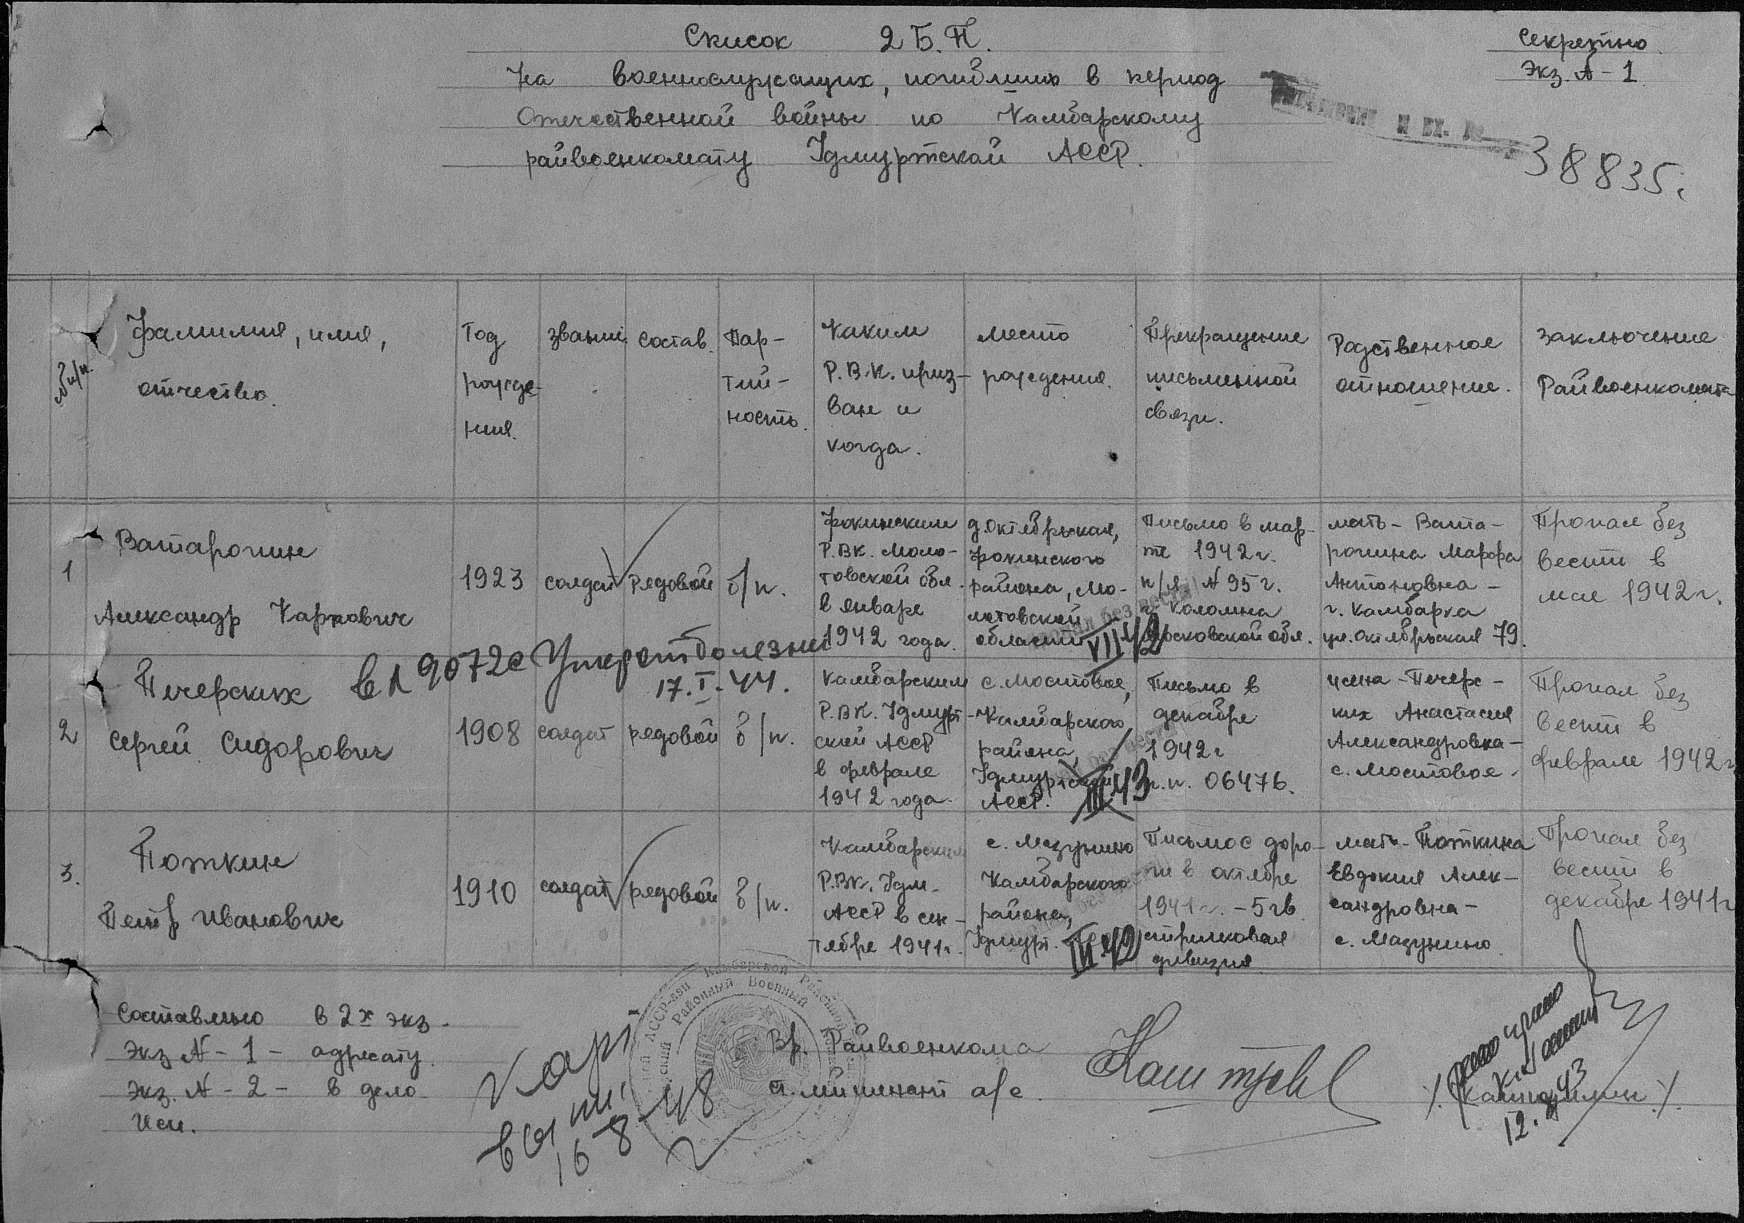 Список 2 Б.П.
Секретно
Экз. № - 1
На военнослужащих, погибших в период
Отечественной войны по Камбарскому
райвоенкомату Удмуртской АССР.
и вх. №
38835с
№ п/п.
Фамилия, имя,
отчество.
Год
рожде-
ния.
Звание
Состав.
Пар-
тий-
ность.
Каким
Р.В.К. приз-
ван и
когда.
Место
рождения.
Прекращение
письменной
связи.
Родственное
отношение.
Заключение
Райвоенкомата
1
Ватаропин
Александр Карпович
1923
солдат
рядовой
б/п.
Фокинским
Р.ВК. Моло-
товской обл.
в январе
1942 года.
д. Октябрьская,
Фокинского
района, Мо-
лотовской
области
VII 42
Письмо в мар-
те 1942 г.
п/я № 95 г.
г. Коломна
Московской обл.
мать - Вата-
ропина Марфа
Антоновна -
г. Камбарка
ул. Октябрьская 79.
Пропал без
вести в
мае 1942 г.
2
Печерских
Сергей Сидорович
вл 9072с Умер от болезни
17.I.44.
1908
солдат
рядовой
б/п.
Камбарским
Р.ВК. Удмурт-
ской АССР
в феврале
1942 года.
с. Мостовое,
Камбарского
района,
Удмуртской
АССР.
III 43
Письмо в
декабре
1942 г
п.п. 06476.
жена - Печерс-
ких Анастасия
Александровна -
с. Мостовое.
Пропал без
вести в
феврале 1942 г
3.
Поткин
Петр Иванович
1910
солдат
рядовой
б/п.
Камбарским
РВК. Удм.
АССР в сен-
тябре 1941 г.
с. Мазунино
Камбарского
района,
Удмурт.
III 42
Письмо с доро-
ги в октябре
1941 г. - 5 гв
стрелковая
дивизия
мать - Поткина
Евдокия Алек-
сандровна -
с. Мазунино
Пропал без
вести в
декабре 1941 г
Составлено в 2х экз.
Экз № - 1 - адресату
Экз. № - 2 - в дело
Исп.
Карт
вып.
16-8-48
Районный Военный
Вр. Райвоенкома
лейтенант а/с